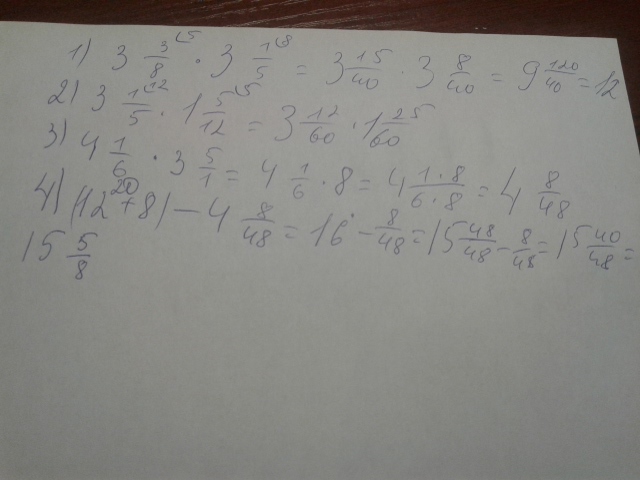 1) 3 3/8 (5 · 3 1/5 (8 = 3 15/40 · 3 8/40 = 9 120/40 = 12
2) 3 1/5 (12 · 1 5/12 (5 = 3 12/60 · 1 25/60
3) 4 1/6 · 3 5/1 = 4 1/6 · 8 = 4 1·8/6·8 = 4 8/48
4) (12 + 8) 20 - 4 8/48 = 16 - 8/48 = 15 48/48 - 8/48 = 15 40/48 =
15 5/8